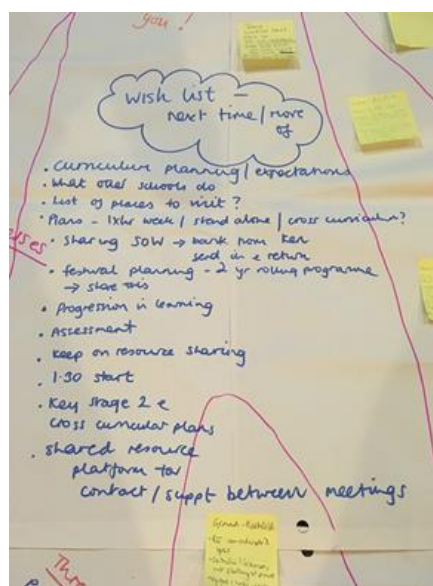 you!
wish list -
next time / more
of
• Curriculum planning / expectations
• What other schools do
• List of places to visit?
• Plans - 1xhr week / stand alone / cross curriculum?
• Sharing SOW → bank from Ken
send in & return
• festival planning - 2 yr rolling programme
→ share this
• Progression in learning
• Assessment
• Keep on resource sharing
• 1.30 start
• Key Stage 2 &
cross curricular plans
• shared resource
platform for
contact / suppt between meetings